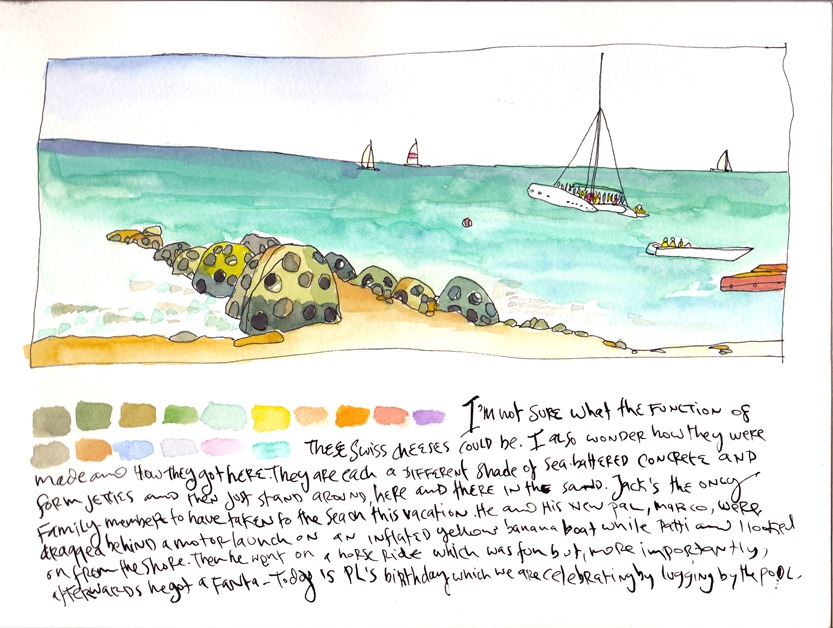 I'm not SURE what the FUNCTION of
These Swiss cheeses could be. I also wonder how they were
made and How they got here. They are each a DIFFERENT Shade of sea-battered CONCRETE AND
form jetties and then just stand around, here and there in the sand. Jack's the only
Family member to have taken to the sea on this vacation. He and His New pal, MARCO, were
dragged behind a motor launch on an inflated yellow banana boat while Patti and I looked
on from the shore. Then he went on a horse Ride which was fun but, more importantly,
afterwards he got a Fanta - Today is PL's birthday which we are celebrating by lugging by the pool.